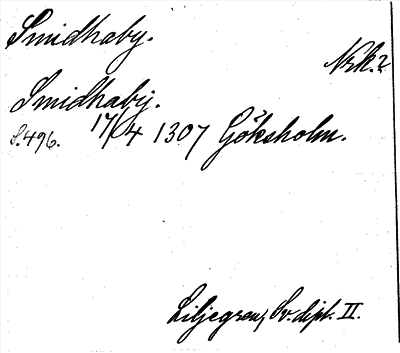 Smidhaby.
Nrk.?
Smidhabÿ.
S.496. 17/4 1307 Göksholm.
Liljegren, Sv. dipl. II.